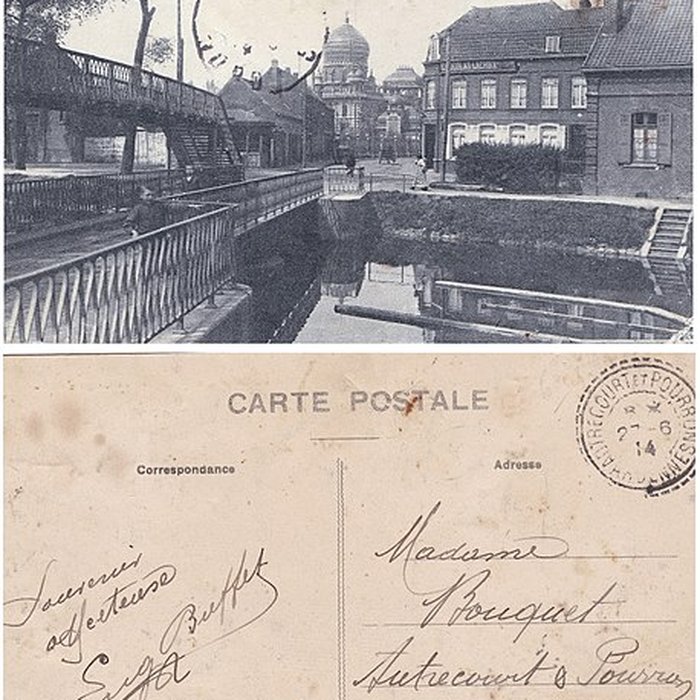 CARTE POSTALE
Correspondance
Adresse
AUTRECOURT ET POURR
27-6
14
ARDENNES
Souvenir
affectueuse
Buffet
Madame
Bouquet
Autrecourt & Pourron